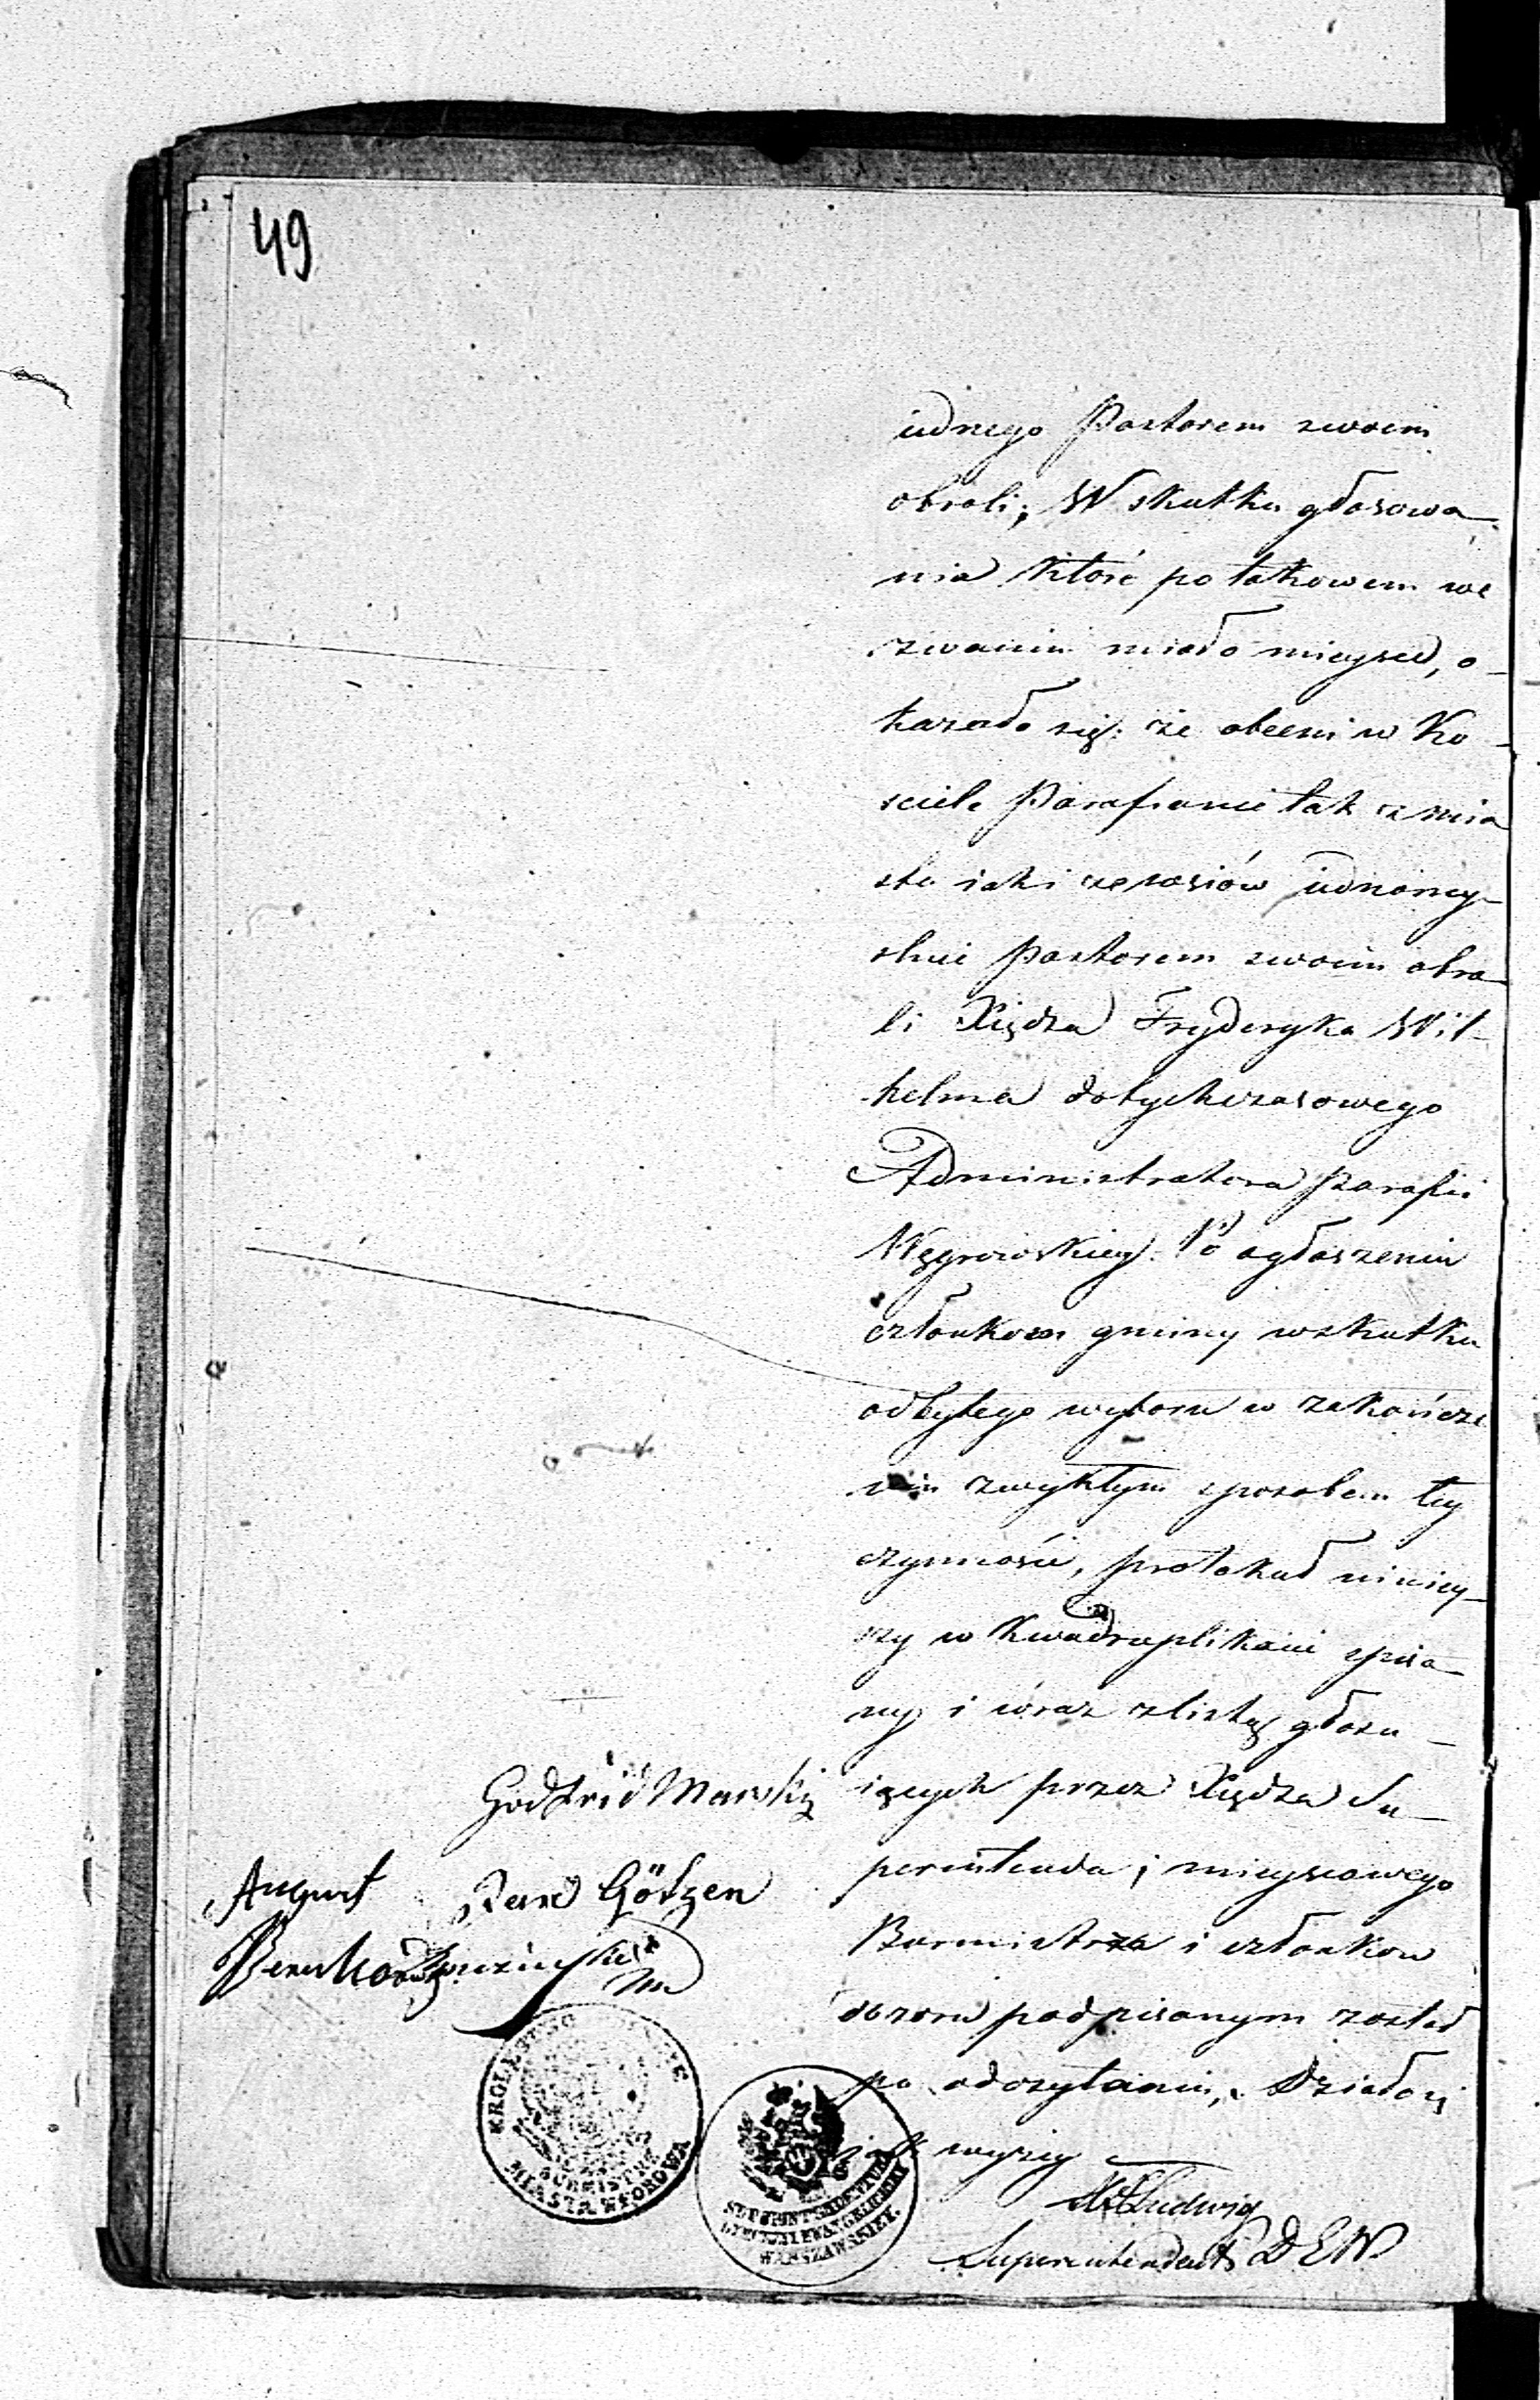 49
iednego Pastorem swoim
obrali; W skutku głosowa-
nia które po takowem we
zwaniu miało mieysce, o-
kazało się: że obecni w Ko-
sciele Parafianie tak z mia
sta iak i ze wsiów iednomy-
slnie Pastorem swoim obra-
li Xiędza Fryderyka Wil-
helma dotychczasowego
Administratora Parafii
Węgrowskiey. Po ogłoszeniu
członkom gminy wskutku
odbytego wyboru w zakończe
niu zwykłym sposobem tey
czynności, protokuł niniey-
szy w kwadruplikacie spisa-
ny i wraz z listą głosu-
iących przez Xiędza Su-
perintenda i mieyscowego
Burmistrza i członków
dozoru podpisanym został
po odczytaniu, Działo się
jak wyżey
Godfrid Marski
August
Karl Götzen
KROLESTWO
BURMISTRZ
MIASTA WĘGROWA
SUPERINTENDENTURA
DYECEZYI EWANGELICKIEY
WARSZAWSKIEY.
Ludwig
Superintendent D E W